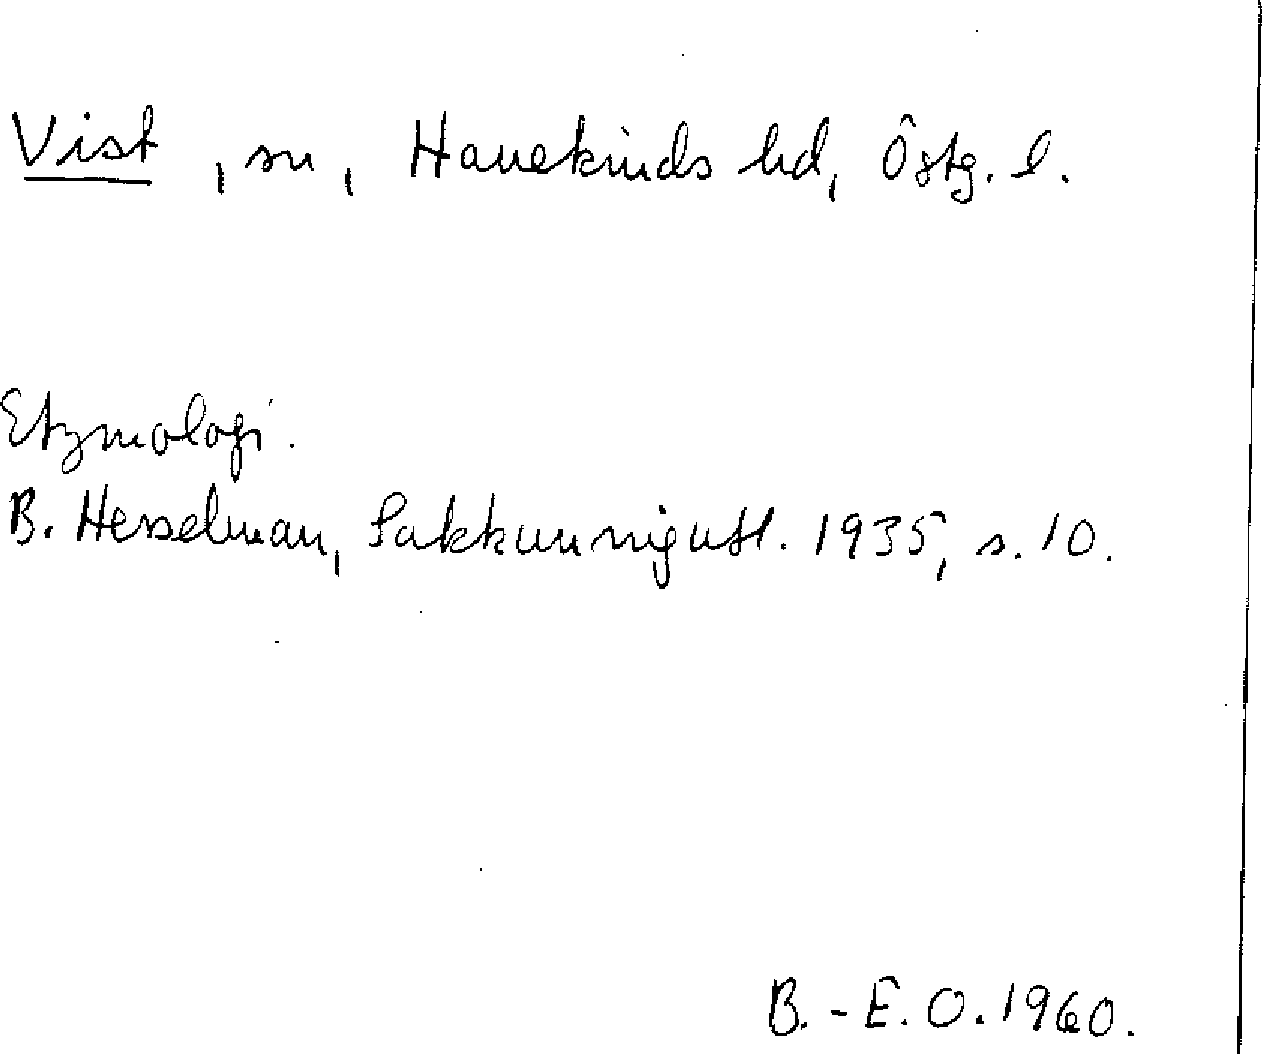 Vist, sn, Hanekinds hd, Östg. l.
Etymologi.
B. Hesselman, Sakkunnigutl. 1935, s. 10.
B.-E. O. 1960.